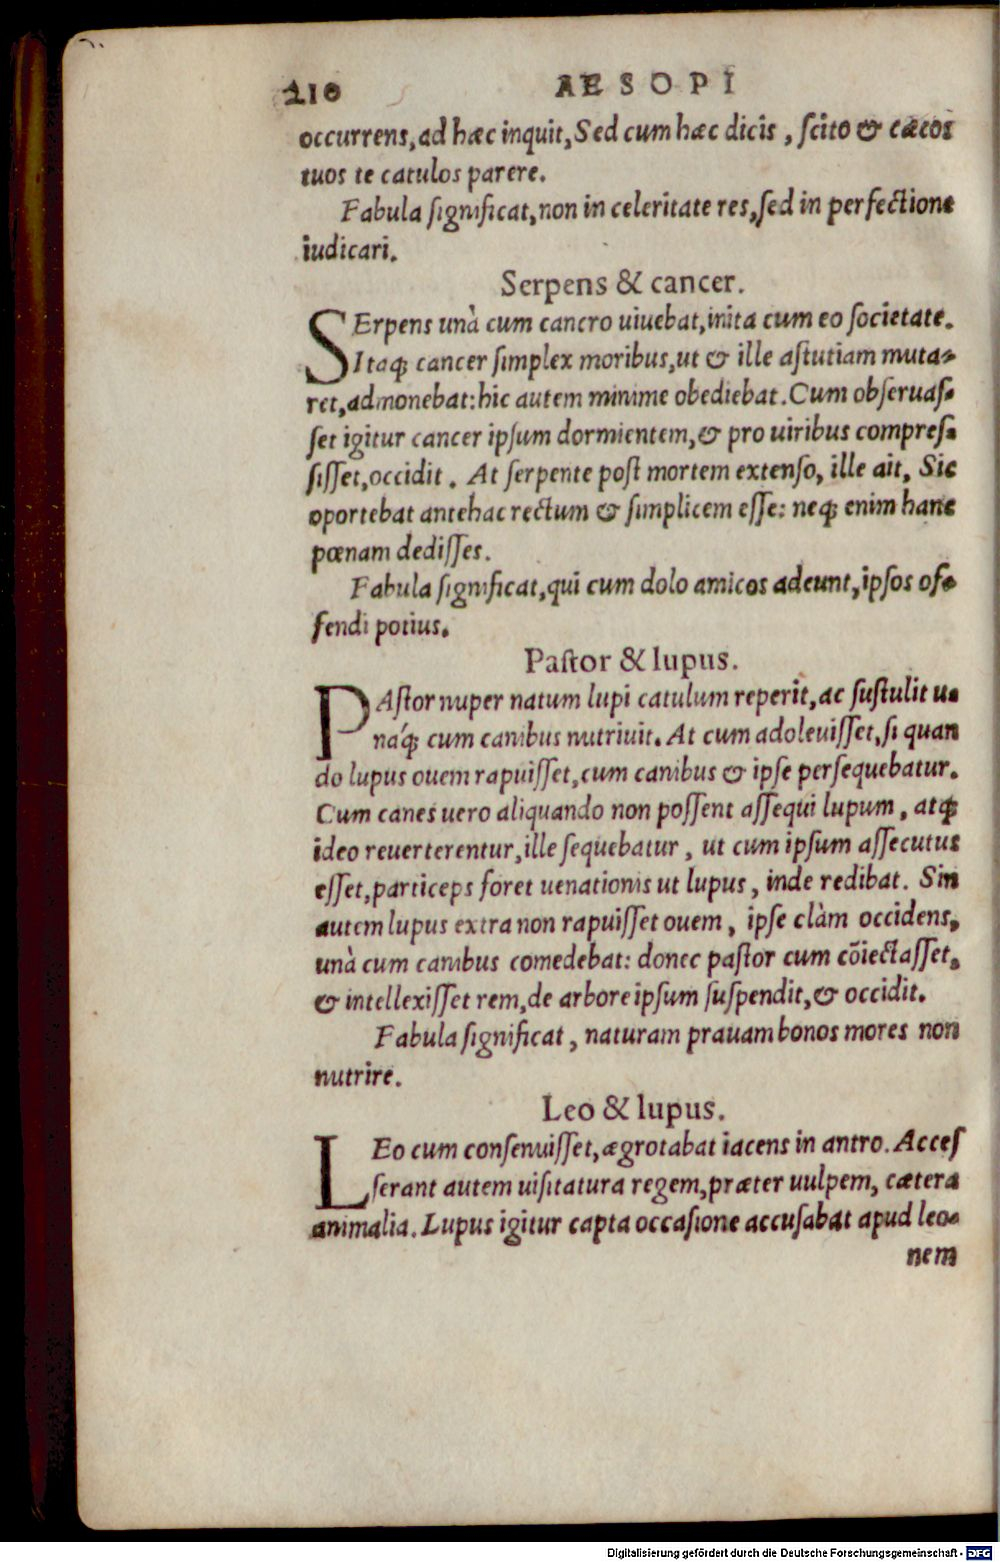 210 AESOPI
occurrens, ad hæc inquit, Sed cum hæc dicis, ſcito & cæcos
tuos te catulos parere.
Fabula ſignificat, non in celeritate res, ſed in perfectione
iudicari.
Serpens & cancer.
SErpens unà cum cancro uiuebat, inita cum eo ſocietate.
Itaq; cancer ſimplex moribus, ut & ille aſtutiam muta-
ret, admonebat: hic autem minime obediebat. Cum obſeruaſ-
ſet igitur cancer ipſum dormientem, & pro uiribus compreſ-
ſiſſet, occidit. At ſerpente poſt mortem extenſo, ille ait, Sic
oportebat antehac rectum & ſimplicem eſſe: neq; enim hanc
pœnam dediſſes.
Fabula ſignificat, qui cum dolo amicos adeunt, ipſos of-
fendi potius.
Paſtor & lupus.
PAſtor nuper natum lupi catulum reperit, ac ſuſtulit u-
náq; cum canibus nutriuit. At cum adoleuiſſet, ſi quan
do lupus ouem rapuiſſet, cum canibus & ipſe perſequebatur.
Cum canes uero aliquando non poſſent aſſequi lupum, atq;
ideo reuerterentur, ille ſequebatur, ut cum ipſum aſſecutus
eſſet, particeps foret uenationis ut lupus, inde redibat. Sin
autem lupus extra non rapuiſſet ouem, ipſe clàm occidens,
unà cum canibus comedebat: donec paſtor cum cōiectaſſet,
& intellexiſſet rem, de arbore ipſum ſuſpendit, & occidit.
Fabula ſignificat, naturam prauam bonos mores non
nutrire.
Leo & lupus.
LEo cum conſenuiſſet, ægrotabat iacens in antro. Acceſ
ſerant autem uiſitatura regem, præter uulpem, cætera
animalia. Lupus igitur capta occaſione accuſabat apud leo-
nem
Digitalisierung gefördert durch die Deutsche Forschungsgemeinschaft - DFG